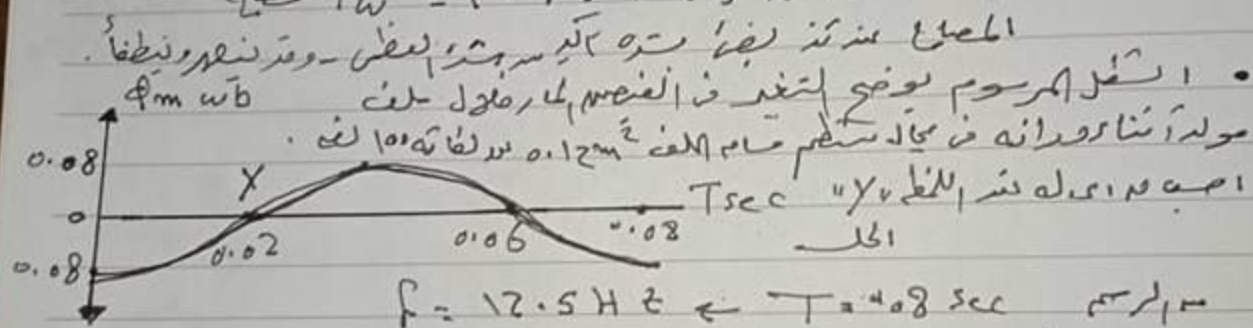 المصباح عندئذ يضئ شده اكبر من شدته العظمى - وقد ينصهر وينطفأ.
• الشكل المرسوم يوضح التغير فى الفيض المار خلال ملف
φm wb
مولد أثناء دورانه فى مجال منتظم مساحه اللف 0.12m² عدد لفاته 100 لفه.
احسب ق.د.ك له عند اللحظه "Y"
0.08
0
0.08
Y
0.02
0.06
0.08
T sec
الحل
من الرسم T = 0.08 sec ← f = 12.5 Hz